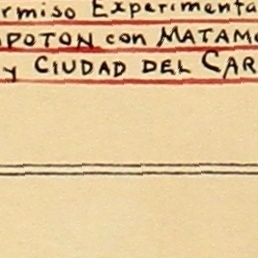 rmiso Experimenta
POTON con MATAM
y CIUDAD DEL CAR